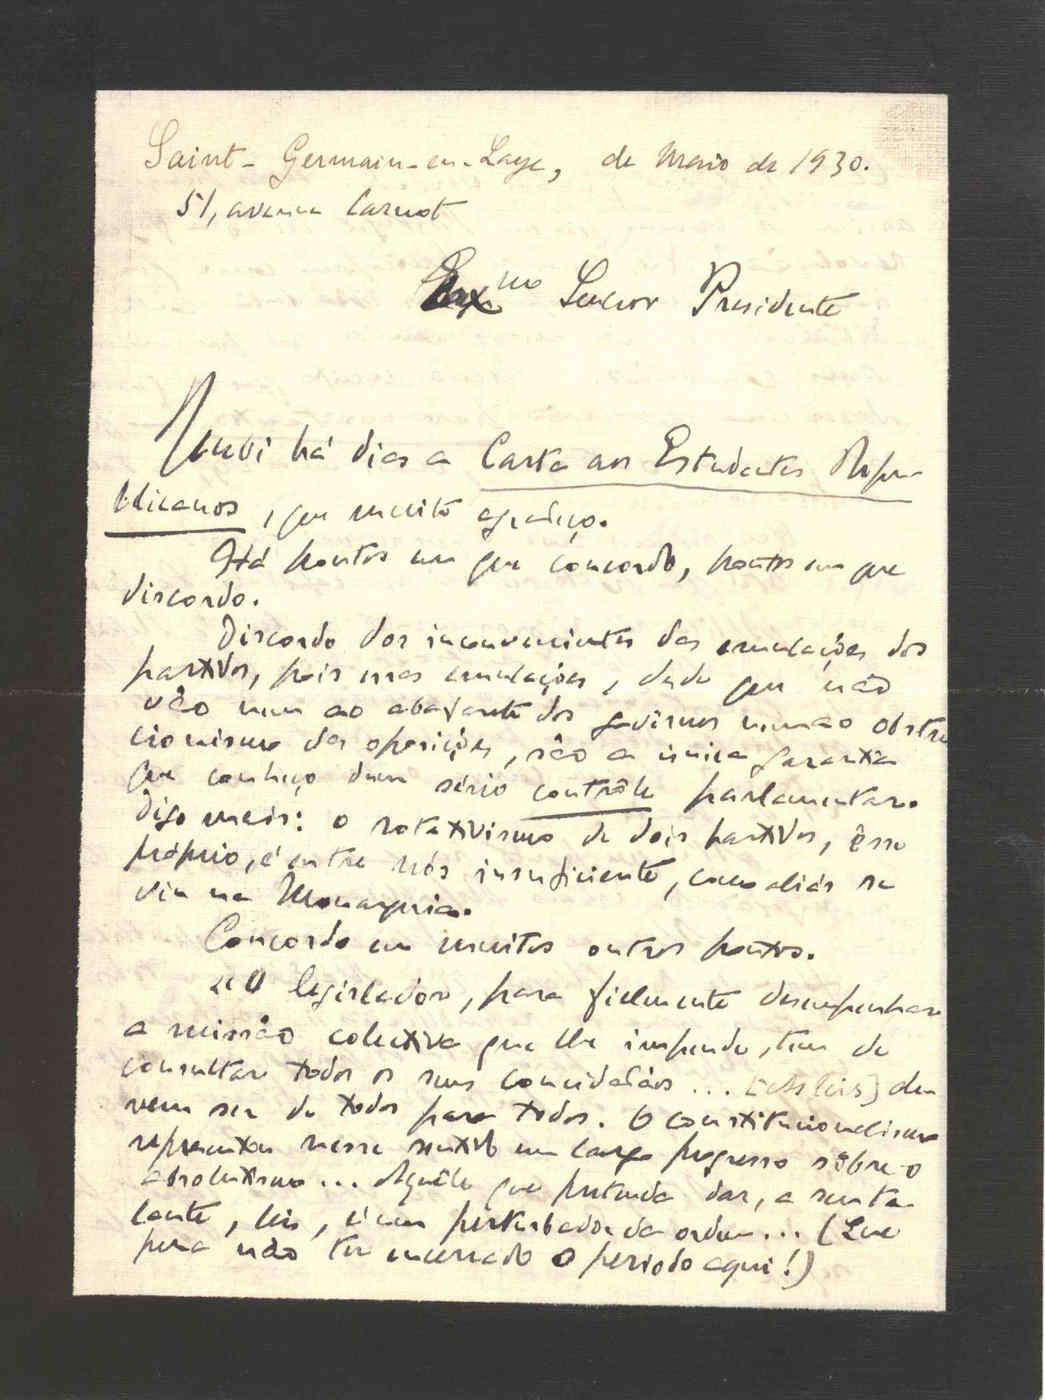 Saint-Germain-en-Laye, de Maio de 1930.
51, avenue Carnot
Exmo Senhor Presidente
Recebi há dias a Carta aos Estudantes Repu-
blicanos, que muito agradeço.
Há pontos em que concordo, pontos em que
discordo.
Discordo dos inconvenientes das emulações dos
partidos, pois essas emulações, desde que não
vão nem ao abafante dos governos nem ao obstru
cionismo das oposições, são a única garantia
que conheço dum sério contrôle parlamentar.
Digo mais: o rotativismo de dois partidos, êsse
próprio, é entre nós insuficiente, como aliás se
viu na Monarquia.
Concordo em muitos outros pontos.
"O legislador, para fielmente desempenhar
a missão colectiva que lhe impende, tem de
consultar todos os seus concidadãos ... [As leis] de
vem ser de todos para todos. O constitucionalismo
representou nesse sentido um largo progresso sôbre o
absolutismo ... Aquêle que pretenda dar, a seu ta-
lante, leis, é um perturbador da ordem ... (Que
pena não ter encerrado o período aqui!)